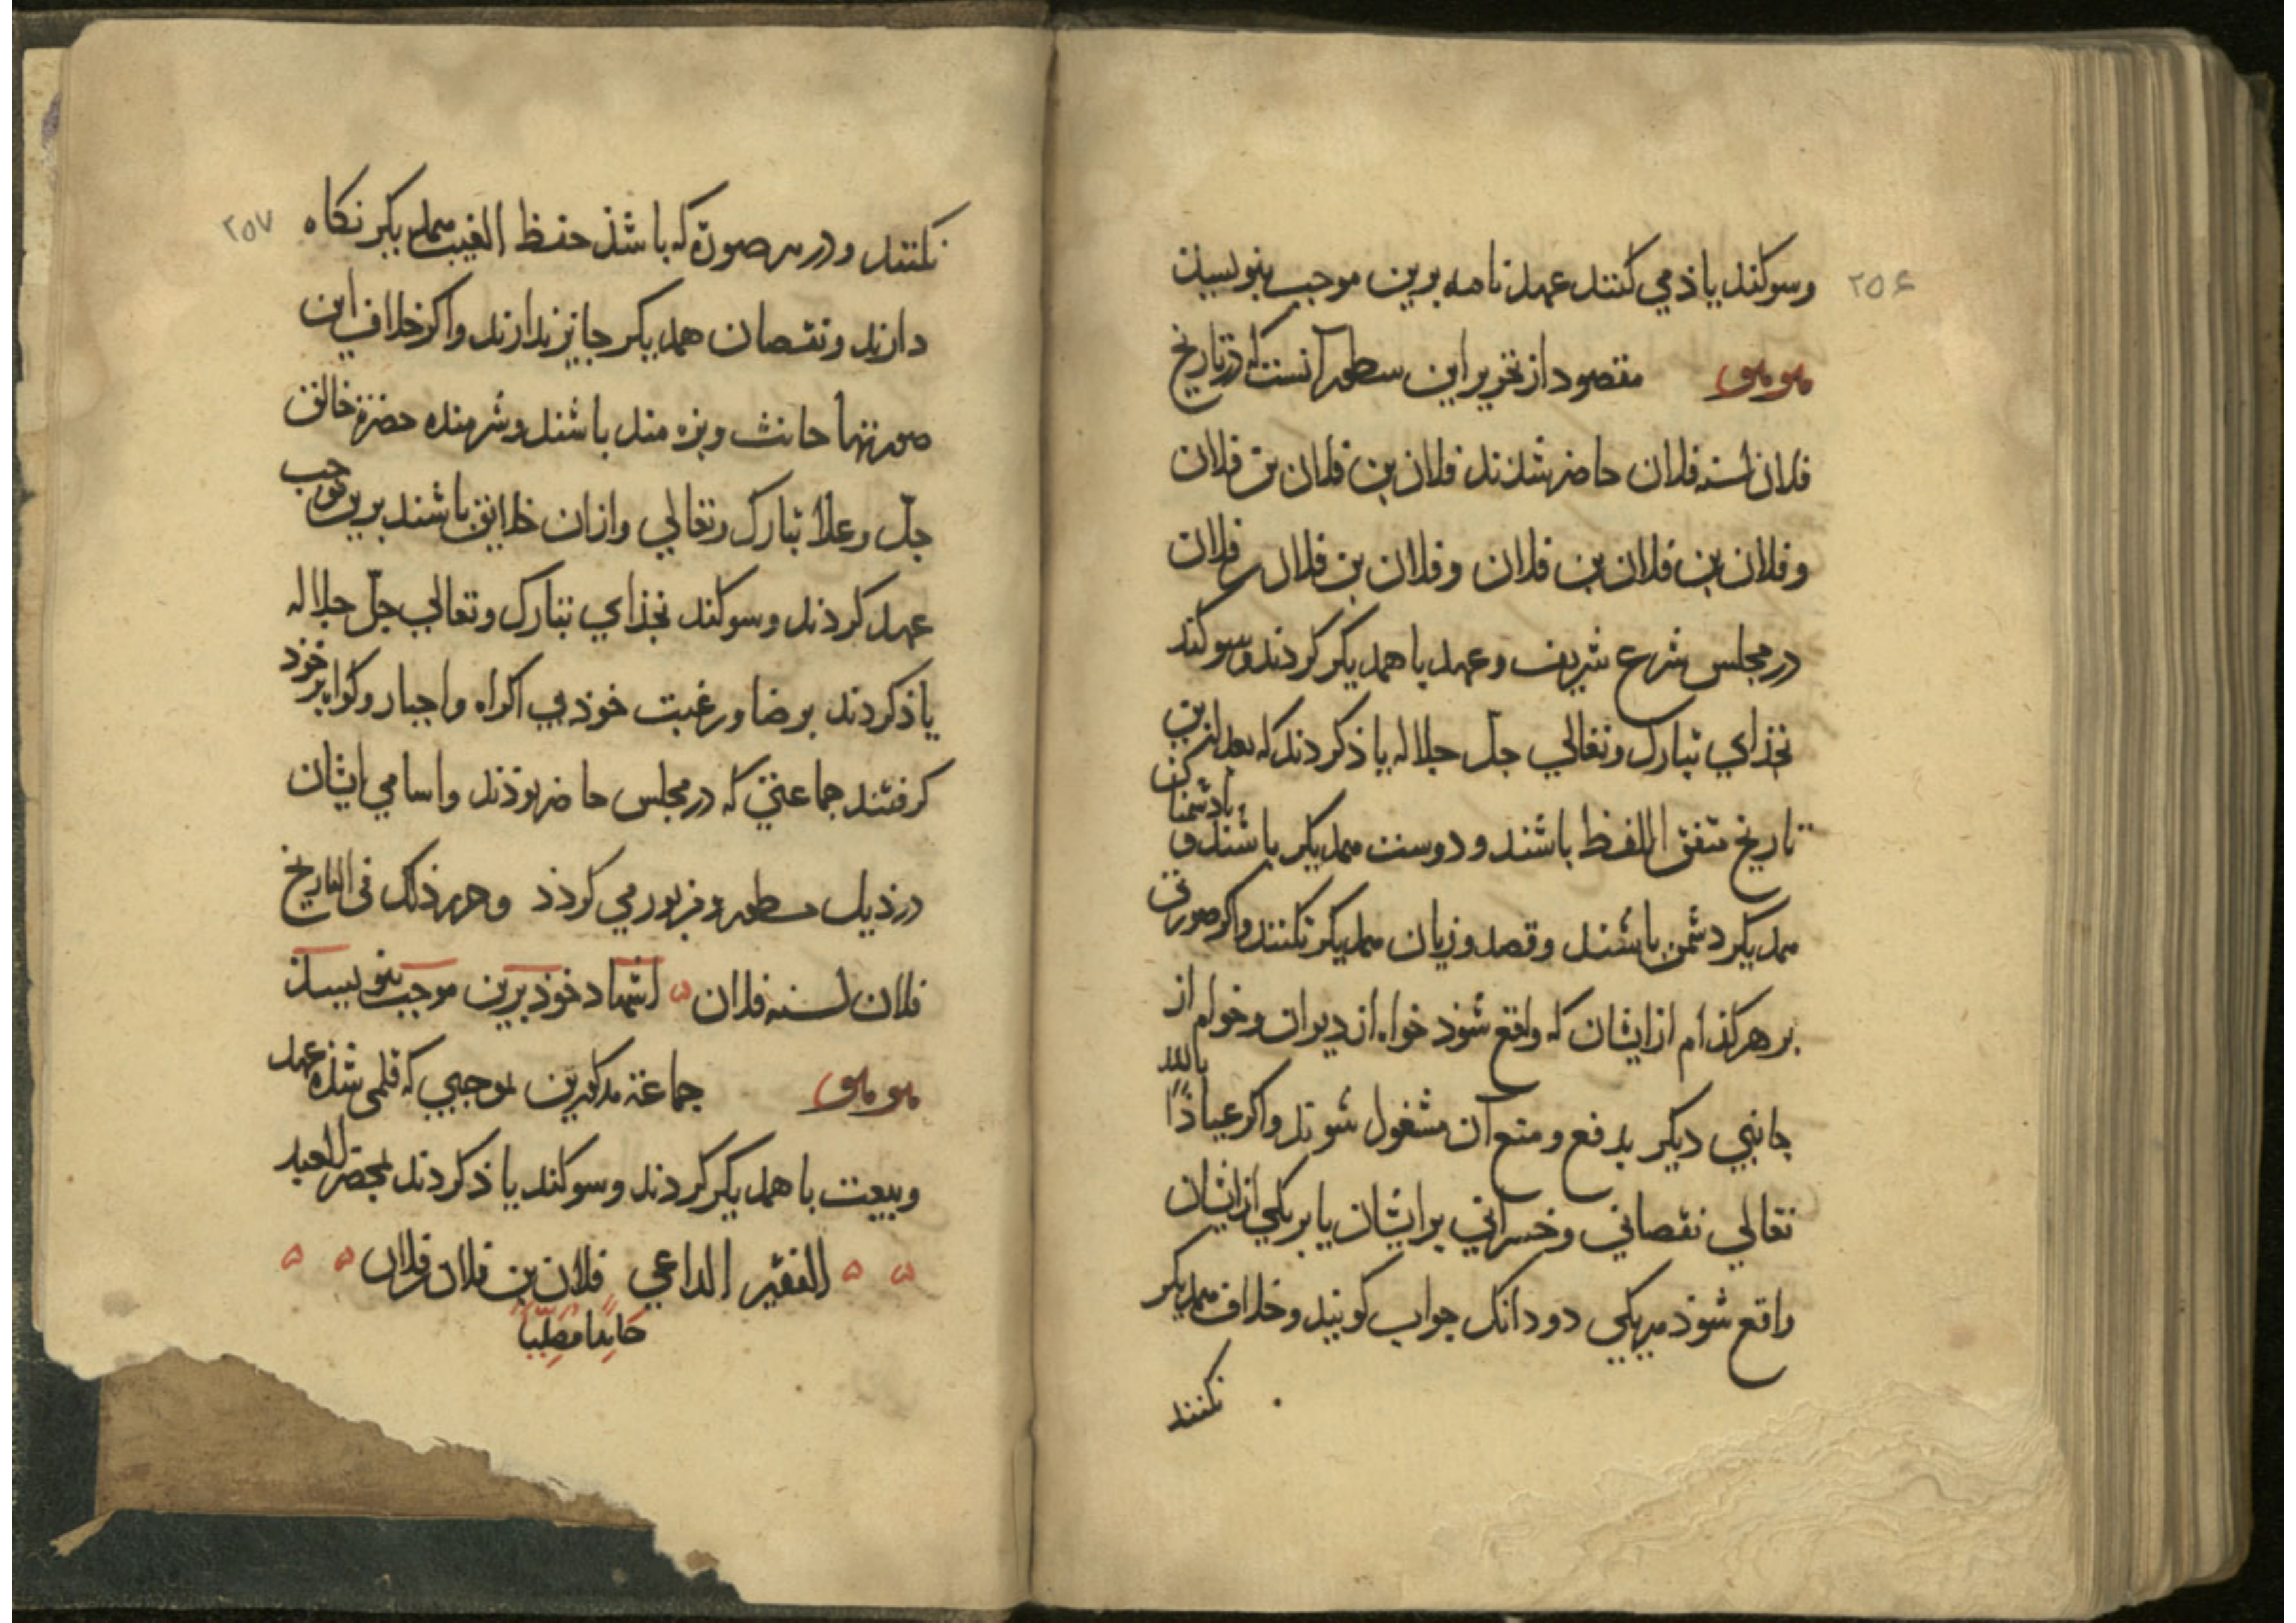 ۲۵۶
وسوکند یاذ می کنند عهد نامه برین موجب بنویسیذ
هو هو مقصود از تحریر این سطور آنست که در تاریخ
فلان لسنه فلان حاضر شذند فلان بن فلان بن فلان
و فلان بن فلان بن فلان و فلان بن فلان فلان
در مجلس شرع شریف و عهد با همدیکر کردند و سوکند
بخذای تبارک وتعالی جلّ جلاله یاذ کردند که بعد ازین
تاریخ متفق اللفظ باشند و دوست همدیکر باشند و بادشمنان
همدیکر دشمن باشند و قصد و زیان همدیکر نکنند و اکر صورتی
بر هر کذام از ایشان که واقع شوذ خواه از دیوان و خواه از
جانبی دیکر بدفع و منع آن مشغول شوند و اکر عیاذًا بالله
تعالی نقصانی و خسرانی بر ایشان یا بر یکی از ایشان
واقع شوذ هریکی دو دانک جواب کویند و خلاف همدیکر
نکنند
۲۵۷
نکنند و در هر صورة که باشذ حفظ الغیب همدیکر نکاه
دارند و نقصان همدیکر جایز ندارند و اکر خلاف این
صورتها حانث و بزه مند باشند و شرمنده حضرة خالق
جلّ وعلا تبارک وتعالی و ازان خلایق باشند برین موجب
عهد کردند و سوکند بخذای تبارک وتعالی جلّ جلاله
یاذ کردند برضا ورغبت خوذ بی اکراه واجبار وکواه بر خوذ
کرفتند جماعتی که در مجلس حاضر بوذند واسامی ایشان
در ذیل مسطور و مزبور می کردذ وحرر ذلک فی التاریخ
فلان لسنه فلان اشهاد خوذ برین موجب بنویسیذ
هو هو جماعة مذکورین بموجبی که قلمی شذه عهد
وبیعت با همدیکر کردند وسوکند یاذ کردند بمحضر العبد
الفقیر الداعی فلان بن فلان فلان
حَامِدًا مُصَلِّیًا